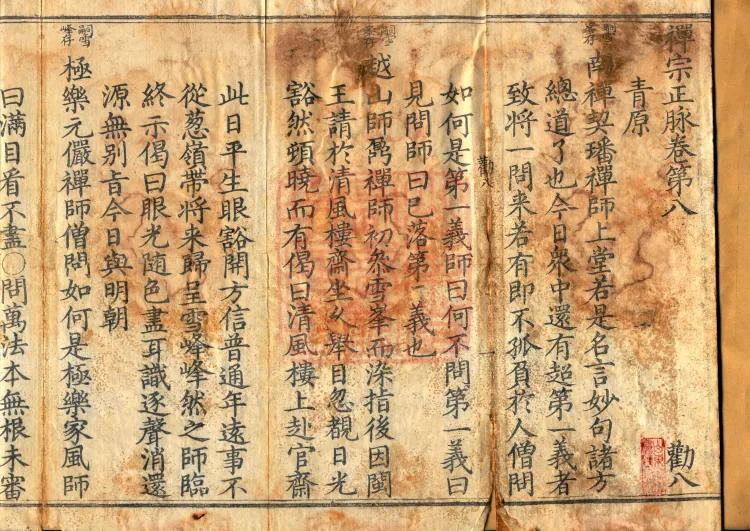 禪宗正脉卷第八 勸八
青原
嗣雪峯存 南禪契璠禪師上堂若是名言妙句諸方
總道了也今日衆中還有超第一義者
致將一問来若有即不孤負於人僧問
勸八 一
如何是第一義師曰何不問第一義曰
見問師曰已落第一義也
嗣雪峯存 越山師鼐禪師初叅雪峯而染指後因閩
王請於清風樓齋坐久舉目忽覩日光
豁然頓曉而有偈曰清風樓上赴官齋
此日平生眼豁開方信普通年遠事不
從葱嶺帶将来歸呈雪峰峰然之師臨
終示偈曰眼光随色盡耳識逐聲消還
源無别旨今日與明朝
嗣雪峰存 極樂元儼禪師僧問如何是極樂家風師
曰滿目看不盡○問萬法本無根未審